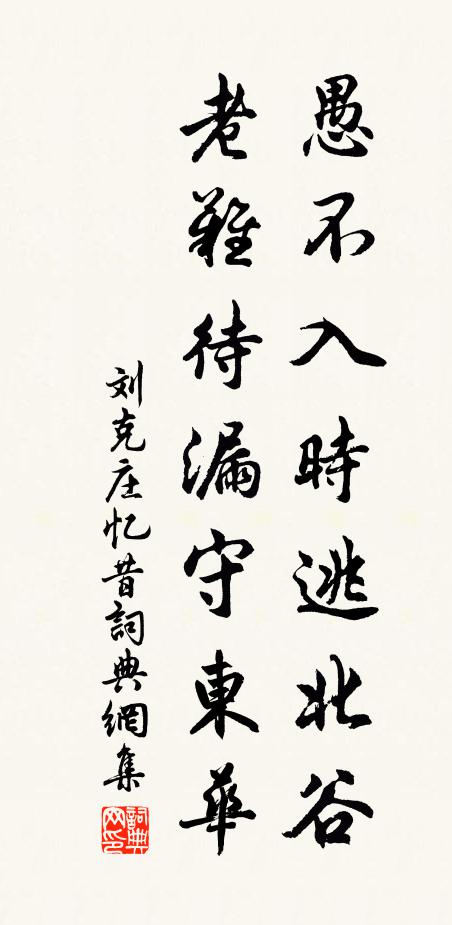 愚不入時逃北谷
老難待漏守東華
刘克庄忆昔詞典網集
詞典網印